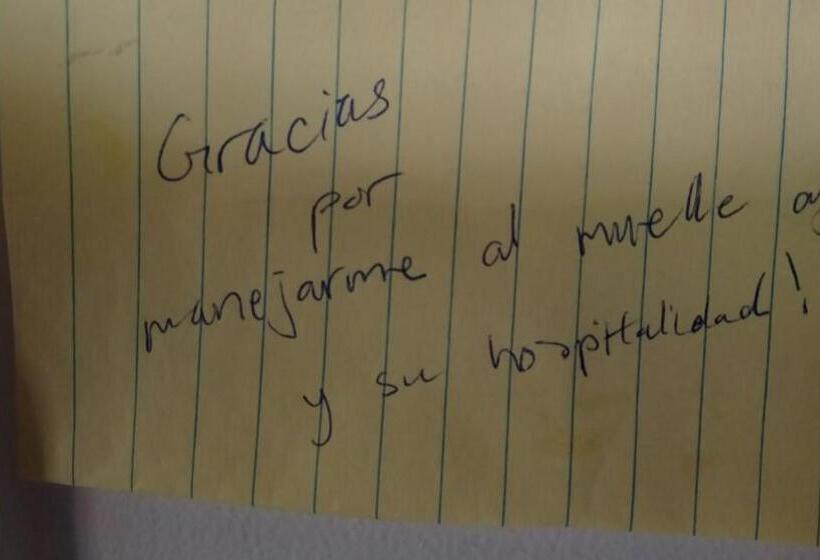 Gracias
por
manejarme al muelle
y su hospitalidad!